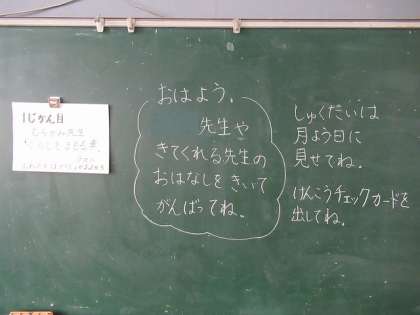 1じかん目
おはよう。
先生や
きてくれる先生の
おはなしをきいて
がんばってね。
しゅくだいは
月よう日に
見せてね。
けんこうチェックカードを
出してね。